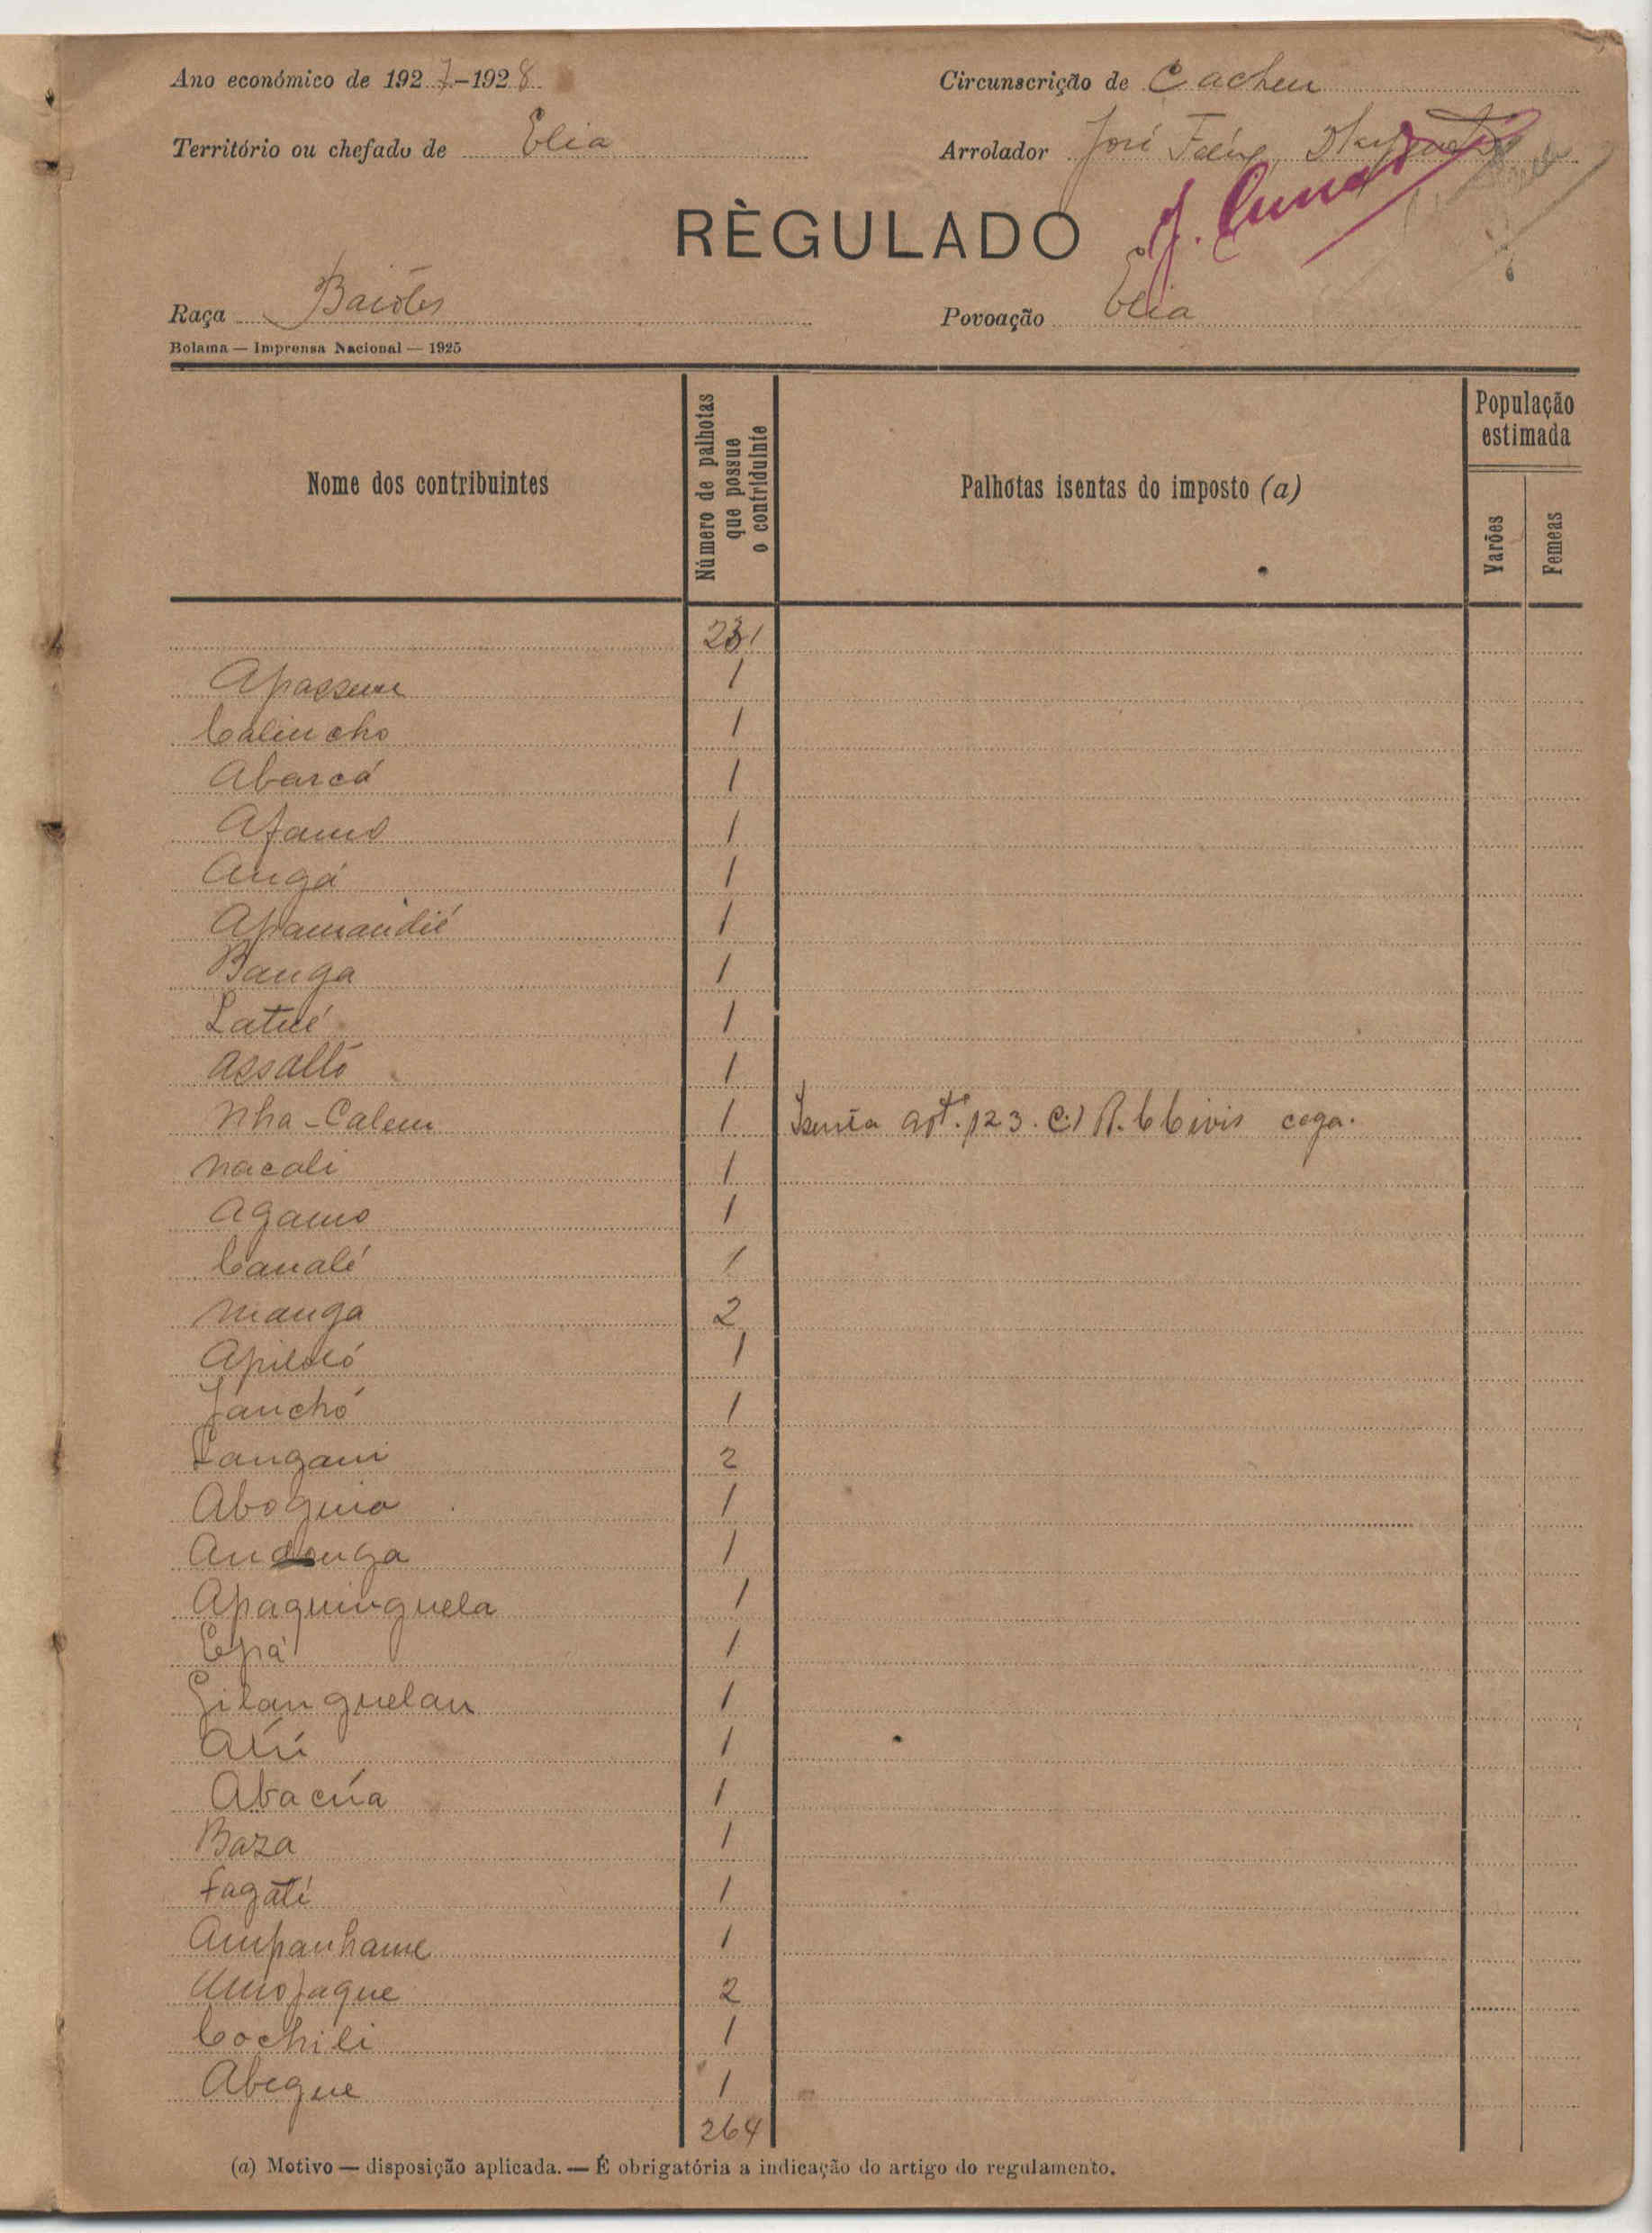 Ano económico de 1927-1928 Circunscrição de Cacheu
Território ou chefado de Elia Arrolador José
J. Cunha
RÈGULADO
Raça Baiótes Povoação Elia
Bolama — Imprensa Nacional — 1925
Nome dos contribuintes
Número de palhotas que possue o contriduinte
Palhotas isentas do imposto (a)
População estimada
Varões
Femeas
231
Apassem 1
Calincho 1
Abarcá 1
Afamo 1
Angá 1
Apamandié 1
Banga 1
Latué 1
Assaltó 1
Nha-Calem 1 Isenta art. 123. C) R. C Civis cega.
Nacali 1
Agamo 1
Canalé 1
Manga 2
Apiloló 1
Janchó 1
Langani 2
Aboguia 1
Andonga 1
Apaquinguela 1
Epá 1
Gilanguelan 1
Alú 1
Abacúa 1
Baza 1
Fagaté 1
Ampanhame 1
Umojaque 2
Cochili 1
Abegue 1
264
(a) Motivo — disposição aplicada. — É obrigatória a indicação do artigo do regulamento.